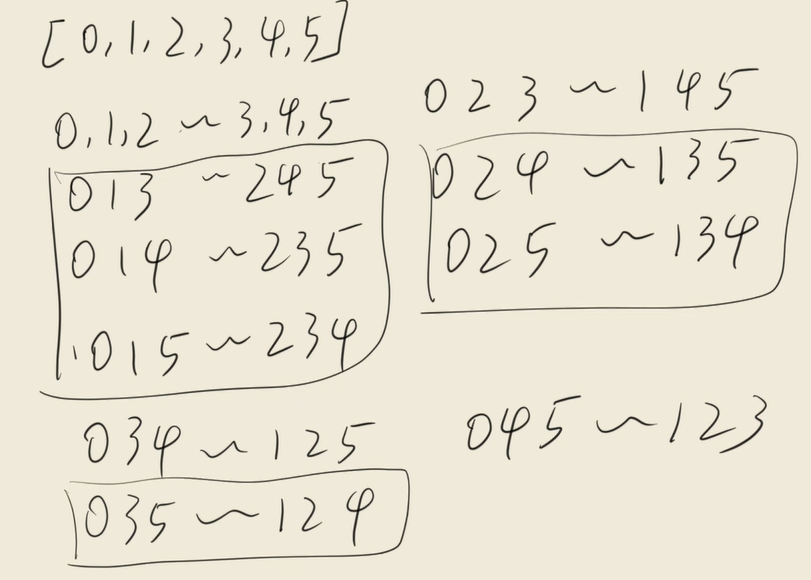 [0,1,2,3,4,5]
0,1,2 ~ 3,4,5
013 ~ 245
014 ~ 235
015 ~ 234
023 ~ 145
024 ~ 135
025 ~ 134
034 ~ 125
035 ~ 124
045 ~ 123